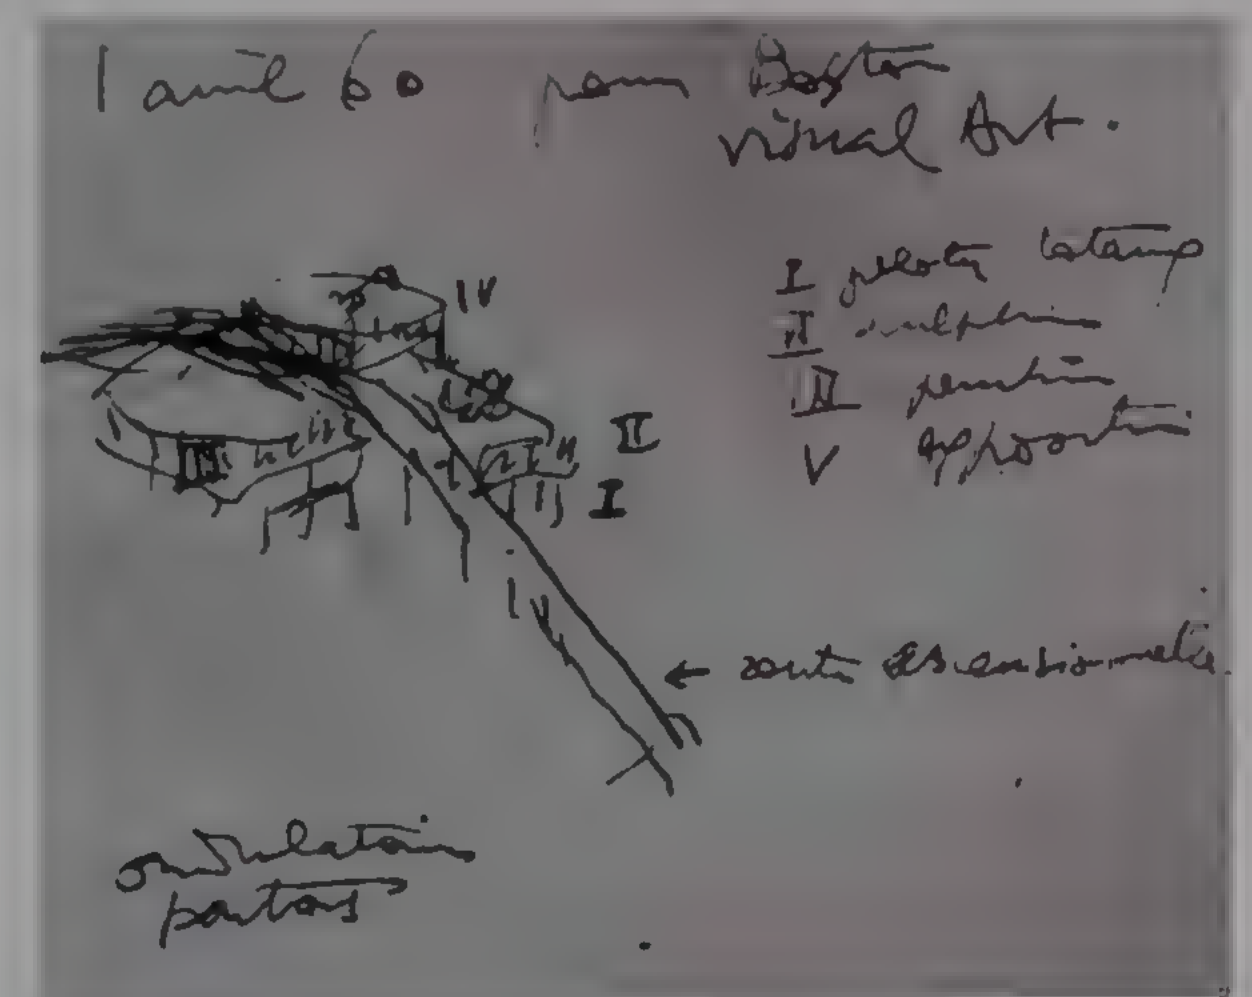 1 avril 60 pour Boston
visual Art.
IV
I pilotis
II sculpture
III peinture
V
III
II
I
← route ascensionnelle
ondulatoire
partout